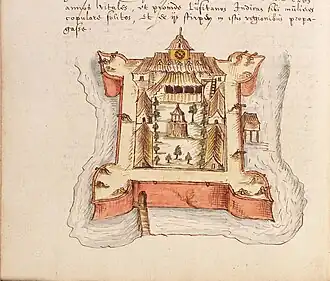 amict Vitales, et proinde Lusitanos Indicas sibi mulieres
copulare solitos, et ex ijs stirpem in istis regionibus propa-
gasse.